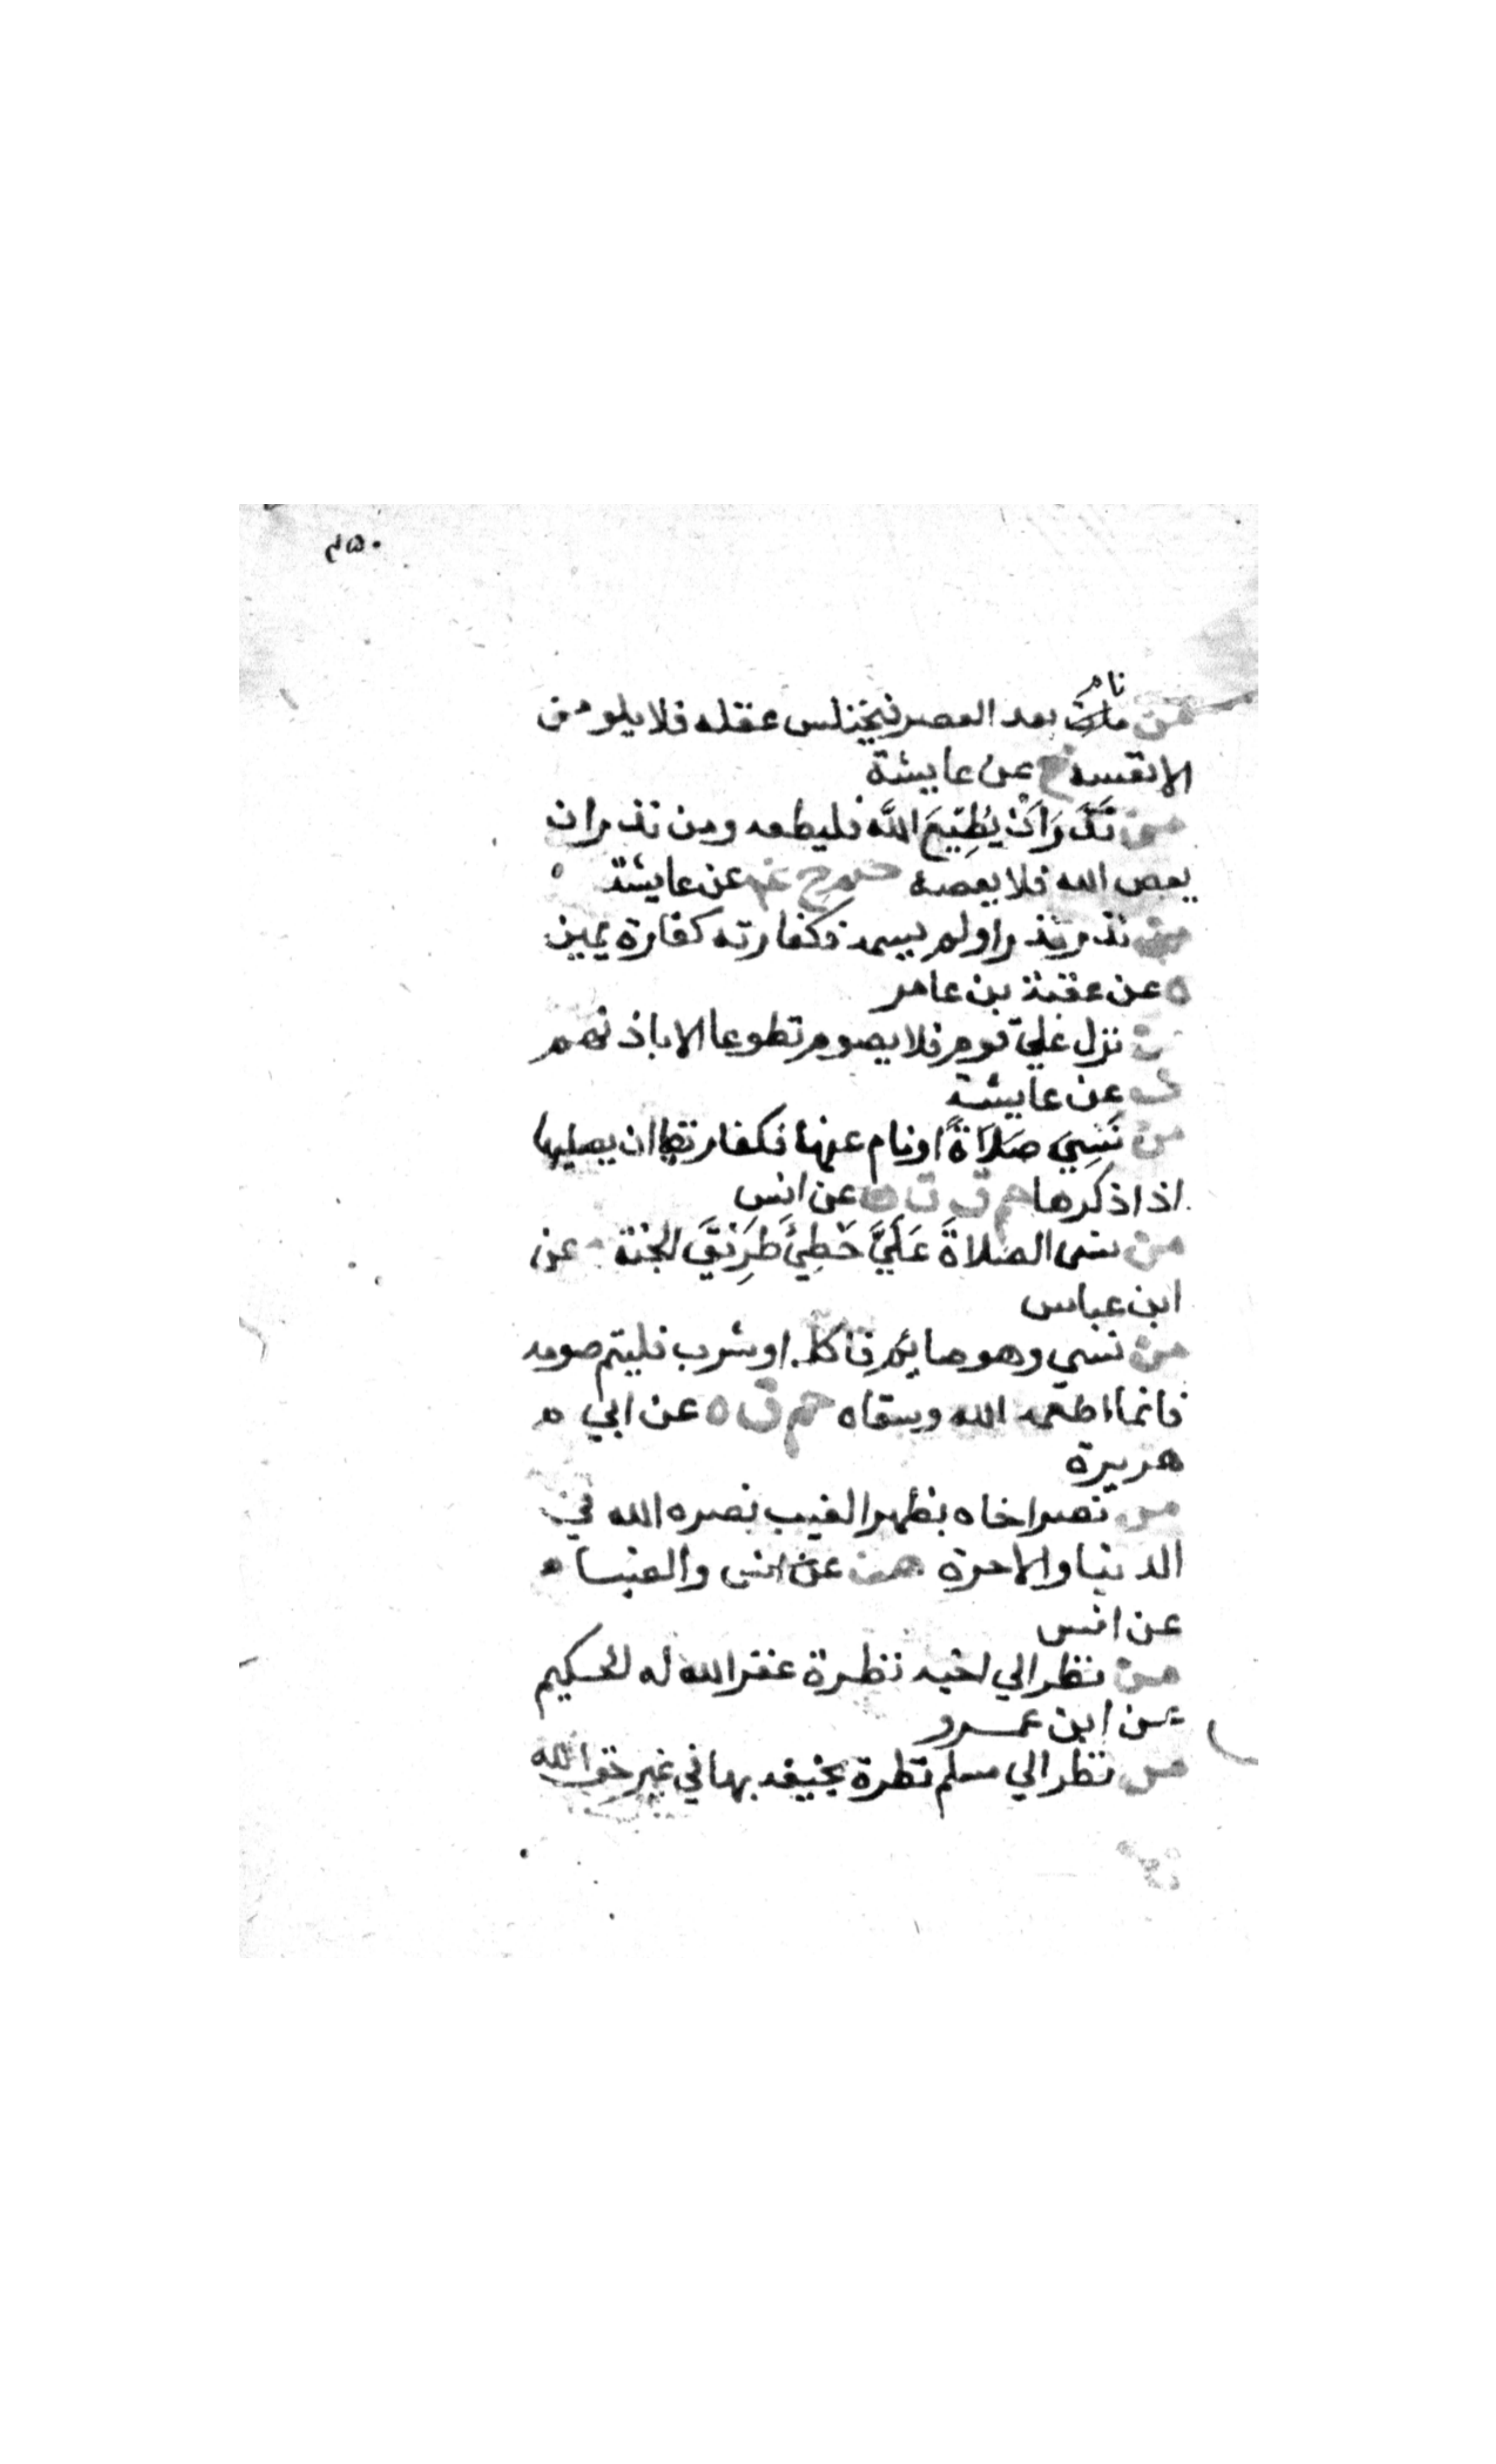 ٤٥٠
نام
من مات بعد العصر فيختلس عقله فلا يلومن
الا نفسه ع عن عايشة
من نَذَرَ اَنْ يُطِيْعَ اللَّه فليطعه ومن نذر ان
يعص الله فلا يعصه حم خ عم عن عايشة
من نذر نذرا ولم يسمه فكفارته كفارة يمين
ه عن عقبة بن عامر
من نزل علي قوم فلا يصوم تطوعا الا باذنهم
ت عن عايشة
من نَسِيَ صَلَاةً او نام عنها فكفارتها ان يصليها
اذا ذكرها حم ق ت ن عن انس
من نسى الصلاةَ عَلَيَّ خَطِئَ طَرِيْقَ الجنة ه عن
ابن عباس
من نسي وهو صايم فاكل او شرب فليتم صومه
فانما اطعمه الله وسقاه حم ق ه عن ابي ه
هريرة
من نصر اخاه بظهر الغيب نصره الله في
الدنيا والاخرة هق عن انس والضيا ه
عن انس
من نظر الي اخيه نظرة غفر الله له الحكيم
عن ابن عمرو
من نظر الي مسلم نظرة يخيفه بها في غير حق الله